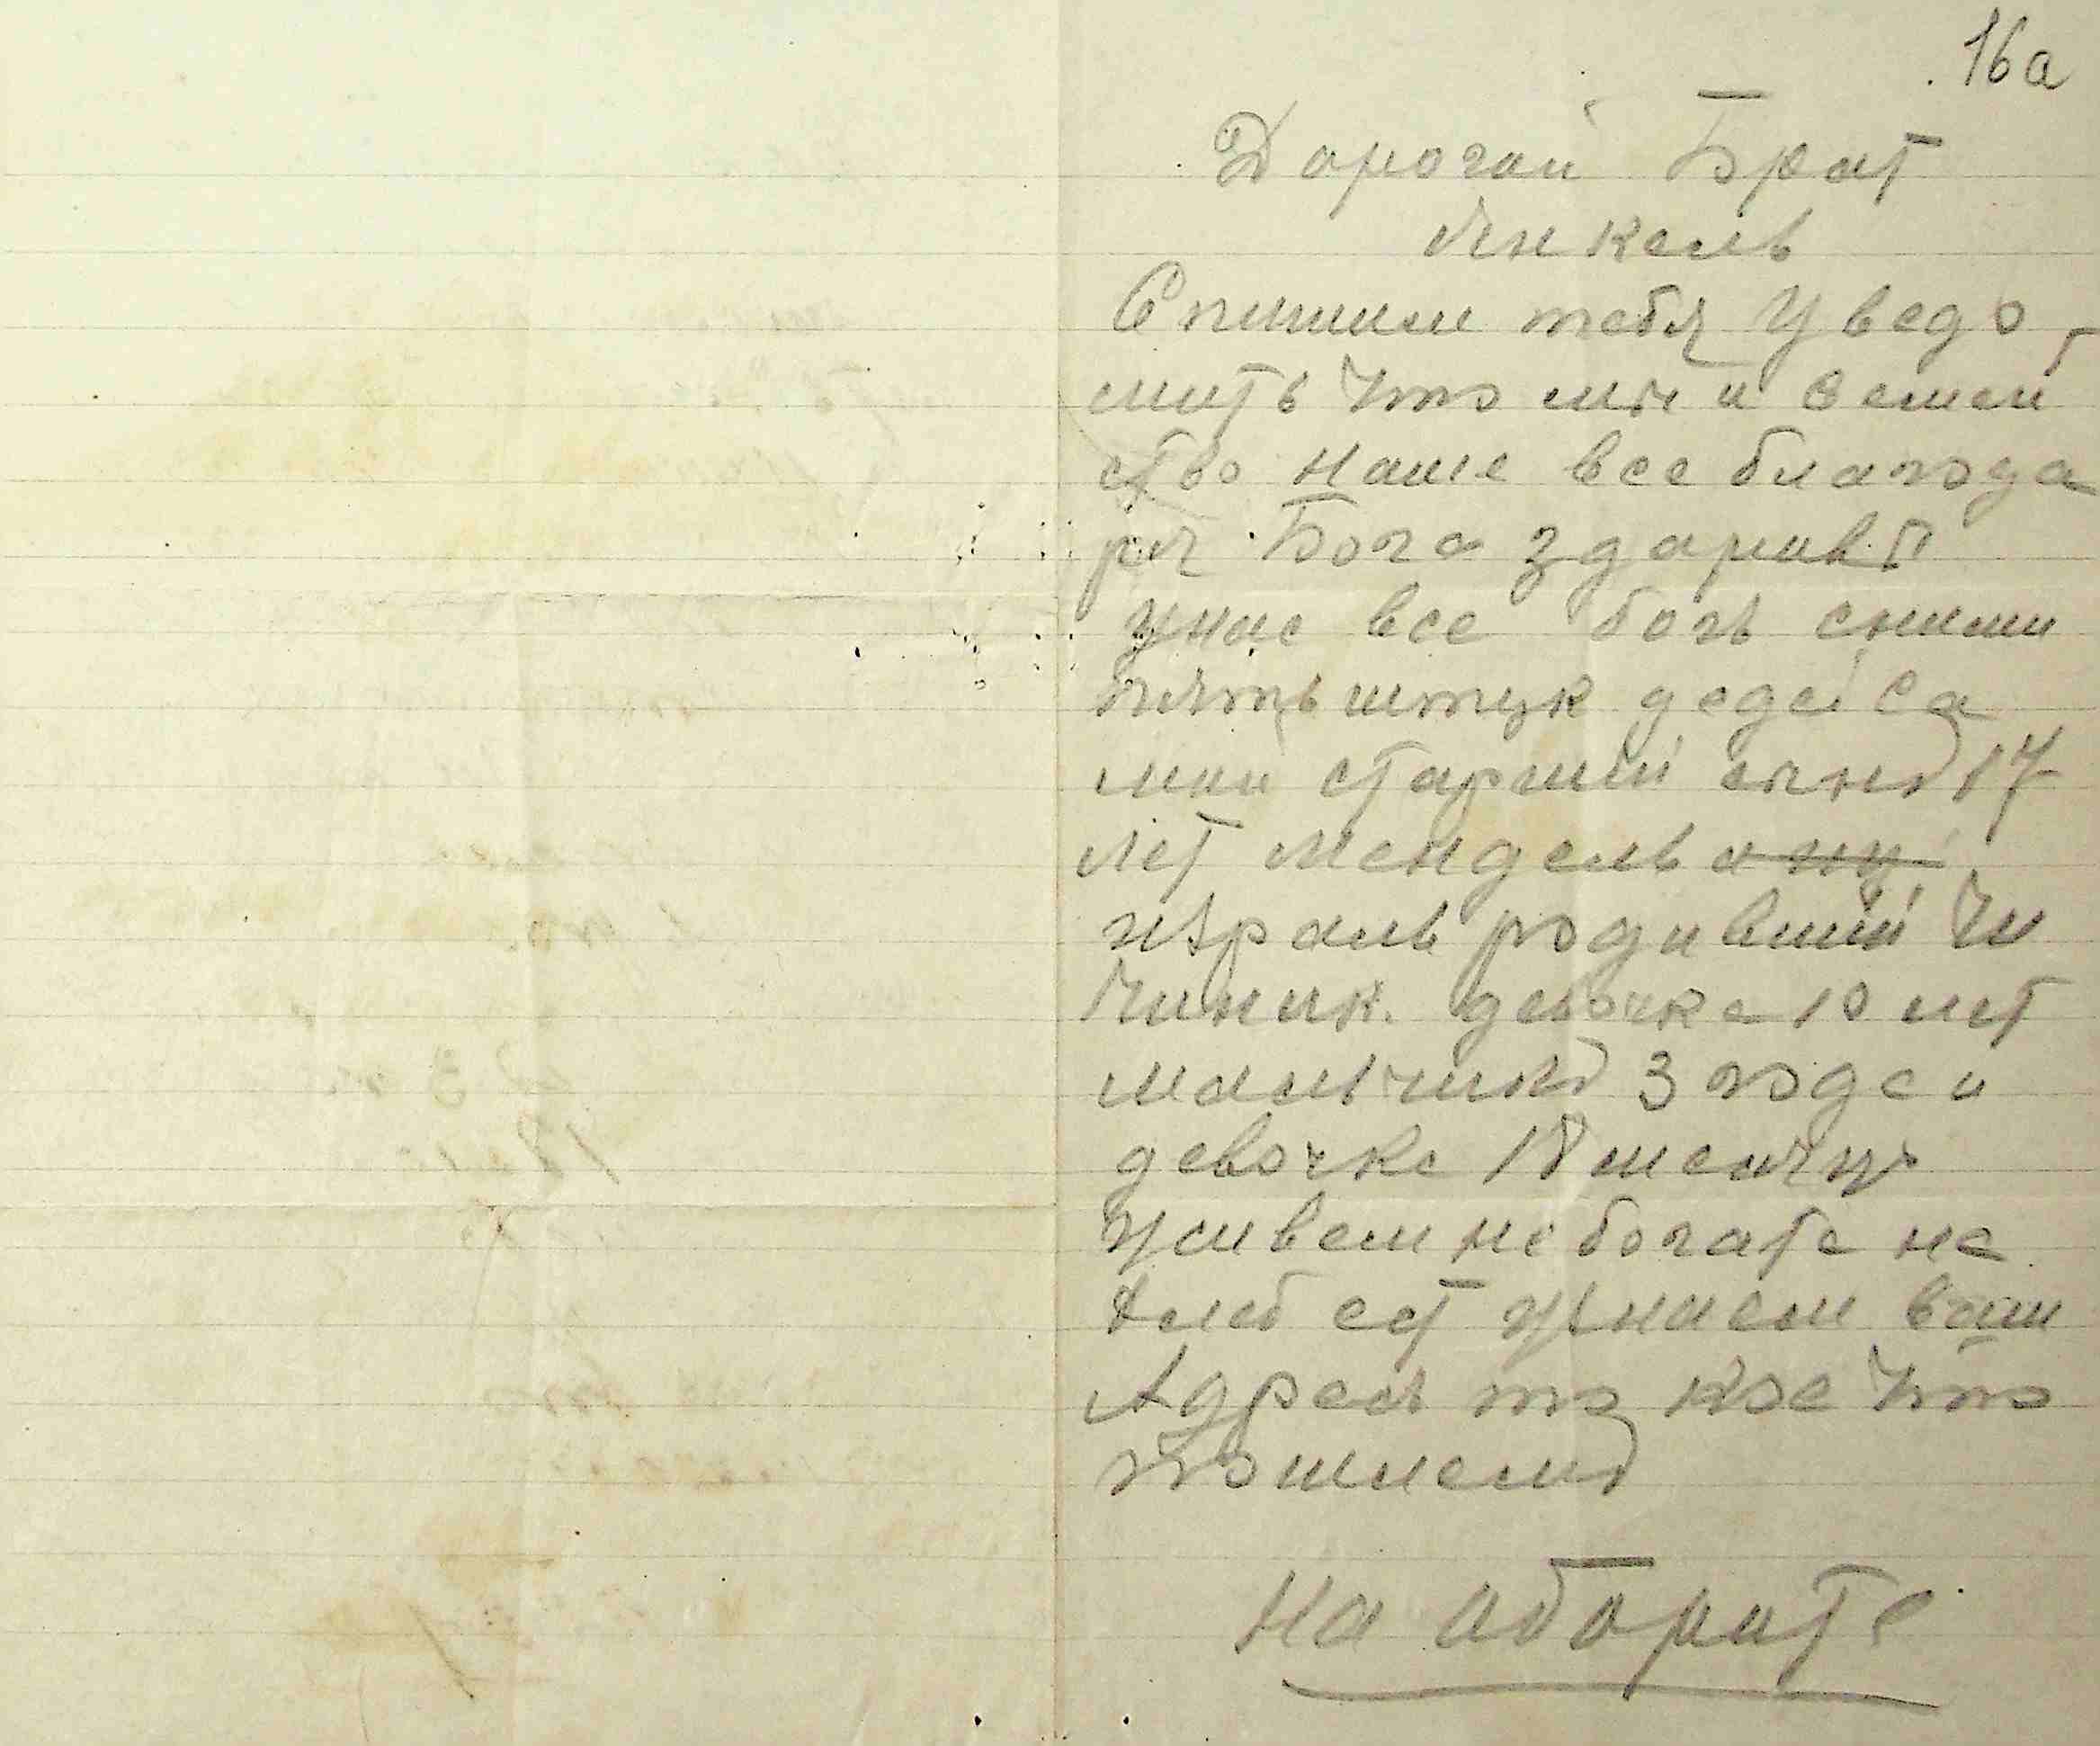 16а
Дорогай Брат
Янкель
Спишим тебя уведо
мить что мы и семей
ство наше все благода
ря Бога здаровы
унас все богь снами
пять штук дедей са
май старший сынъ 17
лет Мендель
израиль родивший
девочка 10 лет
мальчикъ 3 года и
девочка 18 месяцъ
живем не богата на
хлеб ест узнаем ваш
Адресь то кое что
пошлемъ
На абороте